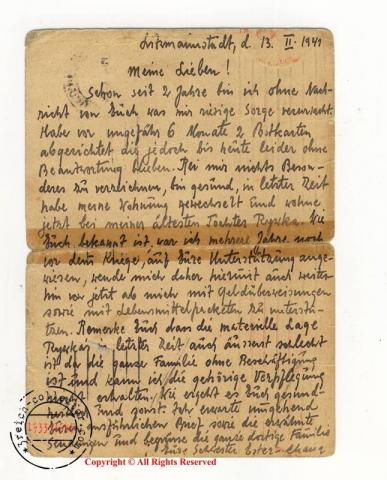 Litzmannstadt, d. 13. II. 1941
Meine Lieben!
Schon seit 2 Jahre bin ich ohne Nach-
richt von Euch was mir riesige Sorge verursacht.
Habe vor ungefähr 6 Monate 2 Postkarten
abgerichtet die jedoch bis heute leider ohne
Beantwortung blieben. Bei mir nichts Beson-
deres zu verzeichnen, bin gesund, in letzter Zeit
habe meine Wohnung gewechselt und wohne
jetzt bei meiner ältesten Tochter Ryvka. Wie
Euch bekannt ist, war ich mehrere Jahre noch
vor dem Kriege, auf Eure Unterstützung ange-
wiesen, wende mich daher hiermit auch weiter-
hin vor jetzt ab mich mit Geldüberweisungen
sowie mit Lebensmittelpacketen zu unterstü-
tzen. Bemerke Euch dass die materielle Lage
in letzter Zeit auch äusserst schlecht
ist da die ganze Familie ohne Beschäftigung
ist und kann ich die gehörige Verpflegung
nicht erhalten. Wie ergeht es Euch gesund-
heitlich und sonst. Ich erwarte umgehend
ausführlichen Brief sowie die erwähnte
Sendungen und begrüsse die ganze dortige Familie
Eure Schwester Ester-Chana
Copyright © All Rights Reserved